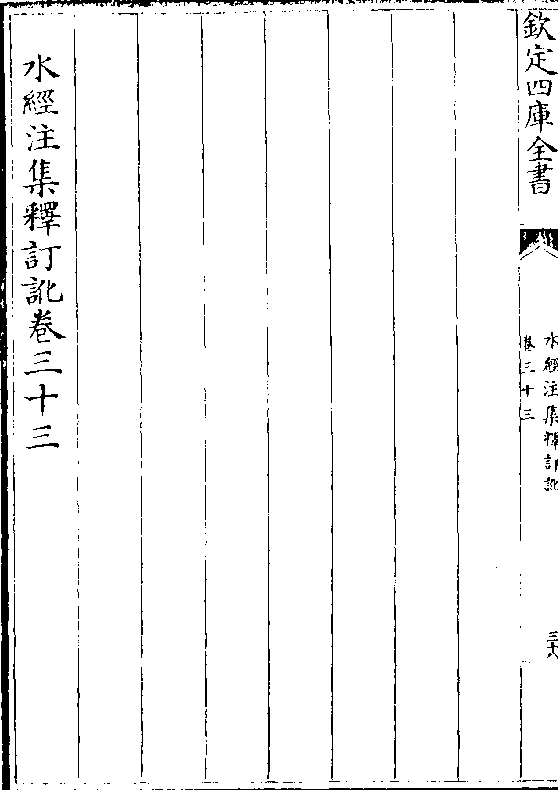 欽定四庫全書
水經注集釋訂訛
卷三十三
三六
水經注集釋訂訛卷三十三